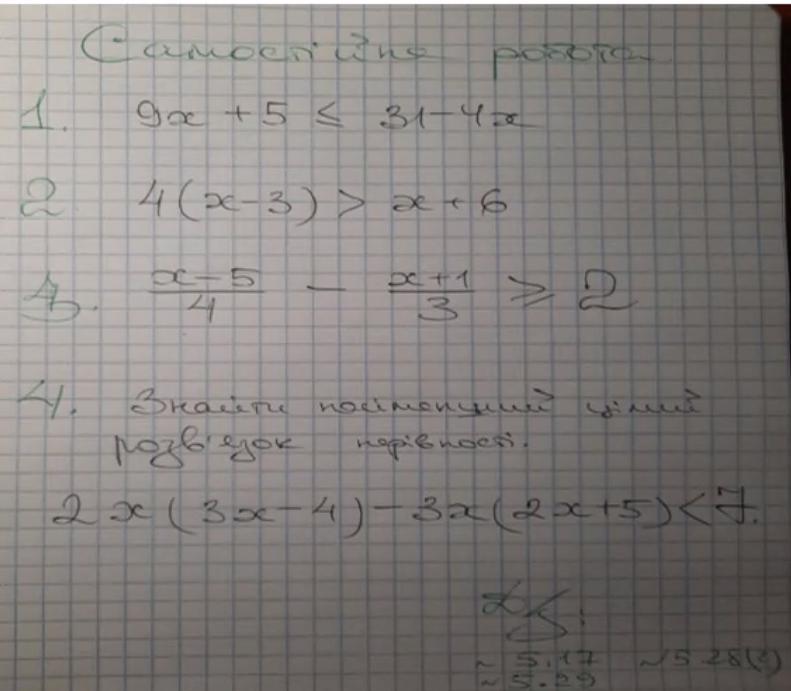 Самостійна робота
1. 9x + 5 ≤ 31 - 4x
2 4(x - 3) > x + 6
3. (x - 5)/4 - (x + 1)/3 ≥ 2
4. Знайти найменший цілий
розв'язок нерівності.
2x(3x - 4) - 3x(2x + 5) < 7.
ДЗ:
~ 5.17 ~ 5.28(2)
~ 5.29